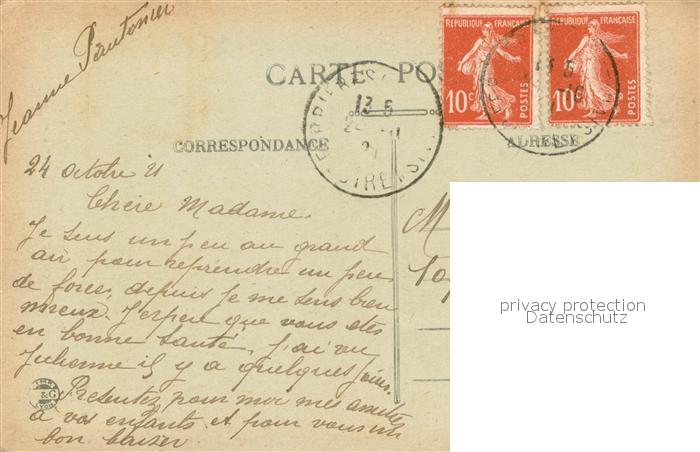 Jeanne
CARTE POS
RÉPUBLIQUE FRANÇAISE
10c
POSTES
RÉPUBLIQUE FRANÇAISE
10c
POSTES
13 5
CORRESPONDANCE
ADRESSE
24 Octobre 21
Chère Madame
Je suis un peu au grand
air pour reprendre un peu
de forces, depuis je me sens bien
mieux. J'espere que vous etes
en bonne santé, j'ai vu
Julienne il y a quelques jours.
Presentez pour moi mes amitiés
à vos enfants et pour vous un
bon baiser
M
privacy protection
Datenschutz